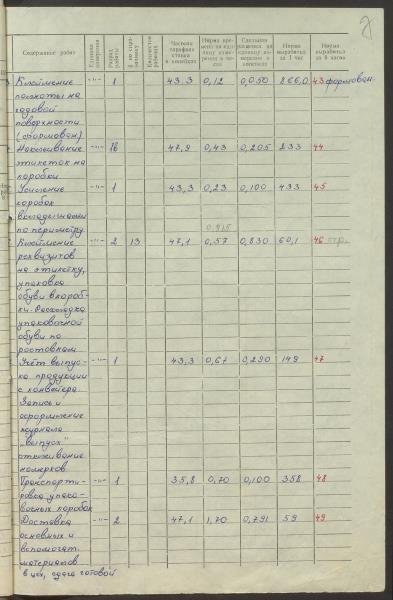 Содержание работ
Единица измерения
Разряд работы
Количество рабочих
Часовая тарифная ставка в копейках
Норма времени на единицу измерения в часах
Сдельная расценка на единицу измерения в копейках
Норма выработки за 1 час
Норма выработки за 8 часов
Клеймение -"- 1 43.3 0,12 0,050 866,0 43 формован.
полноты на
ходовой
поверхности
(сформован)
Наклеивание -"- 1б 47,9 0,43 0,205 233 44
этикеток на
коробки
Усиление -"- 1 43,3 0,23 0,100 433 45
коробок
вкладышами
по периметру
Клеймение -"- 2 13 47,1 0,57 0,830 60,1 46
реквизитов
на этикетку,
упаковка
обуви в короб-
ки. Раскладка
упакованной
обуви по
ростовкам
Учёт выпус- -"- 1 43,3 0,67 0,290 149 47
ка продукции
с конвейера.
Запись и
оформление
журнала
„Выпуск"
отклеивание
номерков
Транспорти- -"- 1 35,8 0,70 0,100 358 48
ровка упако-
вочных коробок
Доставка -"- 2 47,1 1,70 0,791 59 49
основных и
вспомогат.
материалов
в цех, сдача готовой